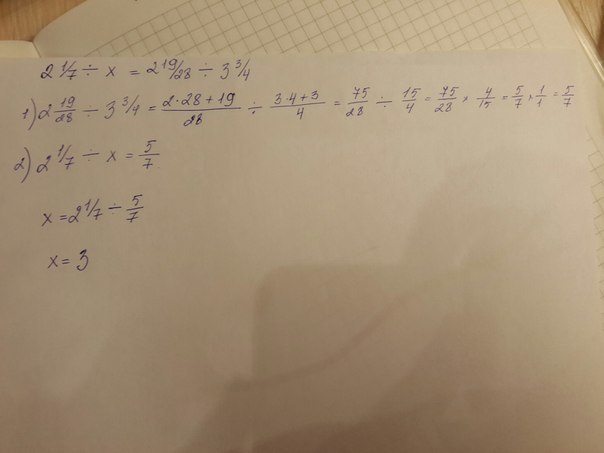 2 1/7 ÷ x = 2 19/28 ÷ 3 3/4
1) 2 19/28 ÷ 3 3/4 = (2·28+19)/28 ÷ (3·4+3)/4 = 75/28 ÷ 15/4 = 75/28 × 4/15 = 5/7 × 1/1 = 5/7
2) 2 1/7 ÷ x = 5/7
x = 2 1/7 ÷ 5/7
x = 3